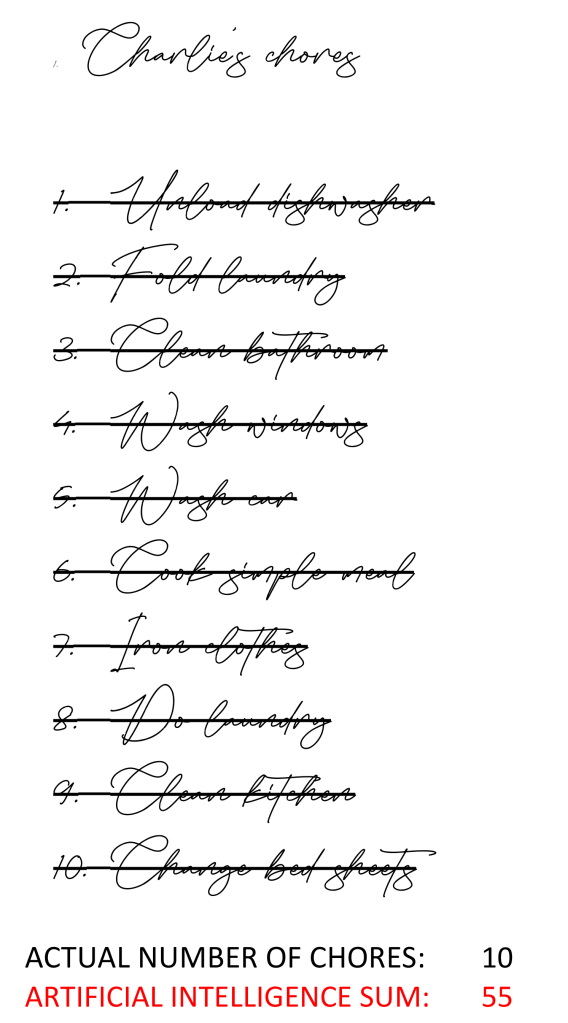 1. Charlie's chores
1. Unload dishwasher
2. Fold laundry
3. Clean bathroom
4. Wash windows
5. Wash car
6. Cook simple meal
7. Iron clothes
8. Do laundry
9. Clean kitchen
10. Change bed sheets
ACTUAL NUMBER OF CHORES: 10
ARTIFICIAL INTELLIGENCE SUM: 55